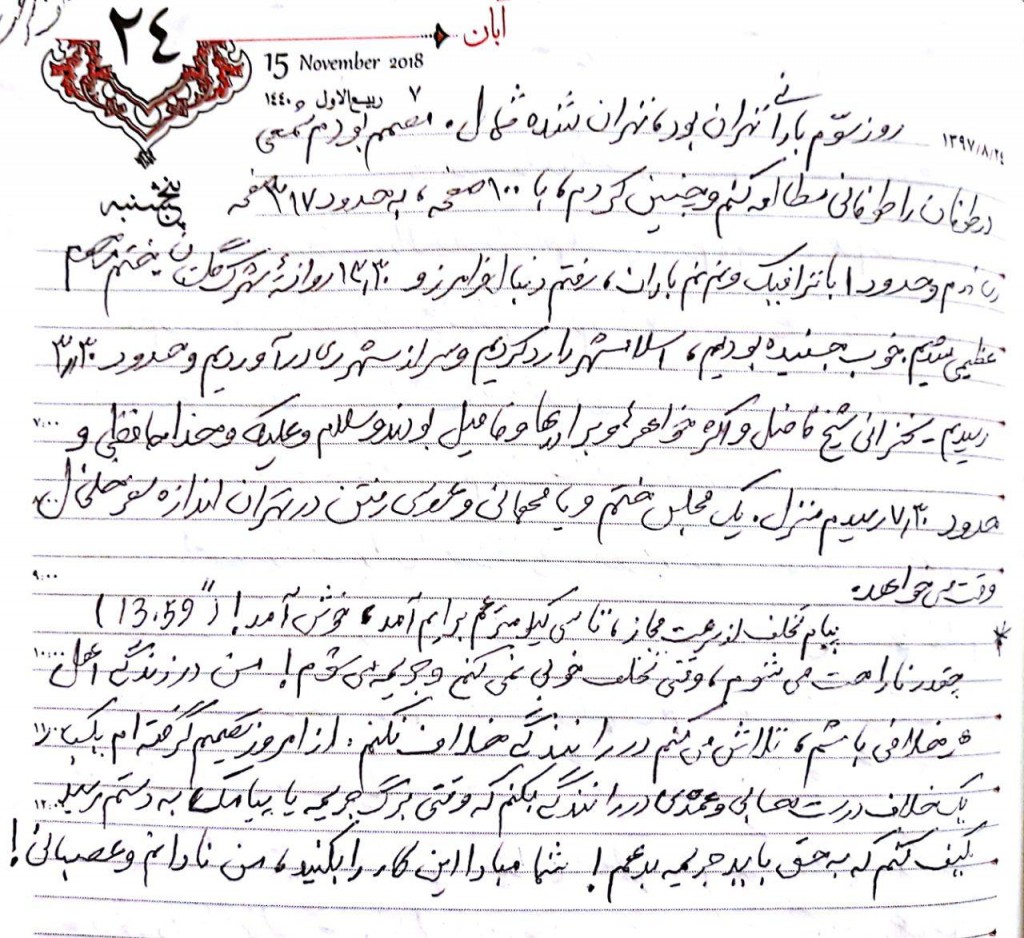 ۲۴
آبان
15 November 2018
۷ ربیع‌الاول ۱۴۴۰
پنجشنبه
۱۳۹۷/۸/۲۴
روز سوّم بارانی تهران بود، تهران شده شمال. مصمم بودم شمعی
در طوفان را طوفانی مطالعه کنم و چنین کردم، با ۱۰۰ صفحه، به حدود ۳۱۷ صفحه
رساندم و حدود ۱ با ترافیک و نم نم باران، رفتم دنبال فرامرز و ۱۳٫۳۰ روانهٔ شهرک گلستان ختم مرحوم
عظیمی شدیم. خوب جنبیده بودیم، اسلامشهر را رد کردیم و سر از شهر ری درآوردیم و حدود ۳٫۳۰
رسیدیم - سخنرانی شیخ فاضل و اکثر خواهرها و برادرها و فامیل بودند و سلام و علیک و خداحافظی و
۷:۰۰
حدود ۷٫۳۰ رسیدم منزل. یک مجلس ختم و یا مهمانی و عروسی رفتن در تهران اندازه سفر خلخال
۸:۰۰
وقت می خواهد.
۹:۰۰
پیام تخلف از سرعت مجاز، تا سی کیلومتر هم برایم آمد، خوش آمد! (13:59")
چقدر ناراحت می شوم، وقتی تخلف خوبی نمی کنم و جریمه می شوم! من در زندگی اهل
۱۰:۰۰
هر خلافی باشم، تلاش می کنم در رانندگی خلاف نکنم. از امروز تصمیم گرفته ام یکبار
۱۱:۰۰
یک خلاف درست حسابی و عمدی در رانندگی بکنم که وقتی برگ جریمه یا پیامک به دستم رسید
۱۲:۰۰
کیف کنم که به حق باید جریمه بدهم! شما مبادا این کار را بکنید، من نادانم و عصبانی!